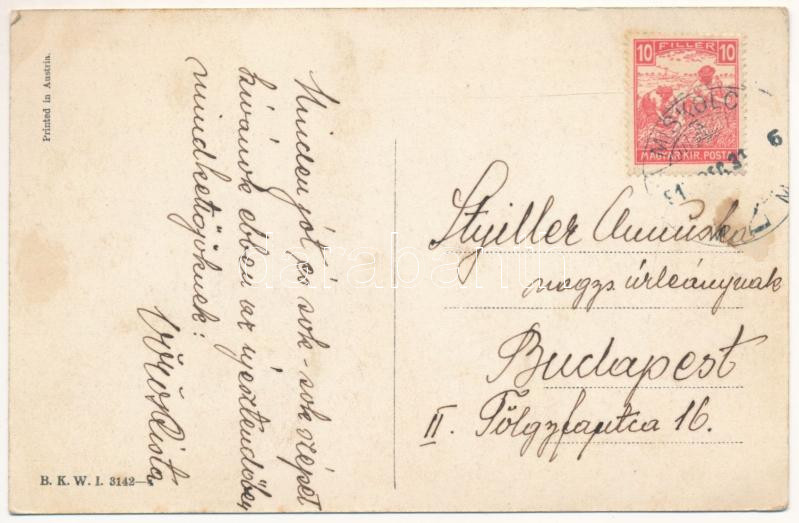 Printed in Austria.
Minden jót, és sok-sok szépet
kívánok ebben az újesztendőben
mindkettőjöknek:
Vörös Pista
B. K. W. I. 3142
10 FILLER 10
MAGYAR KIR. POSTA
MISKOLC
Styiller Annuska
nagys. úrleánynak
Budapest
II. Fölgyfautca 16.
darabanth